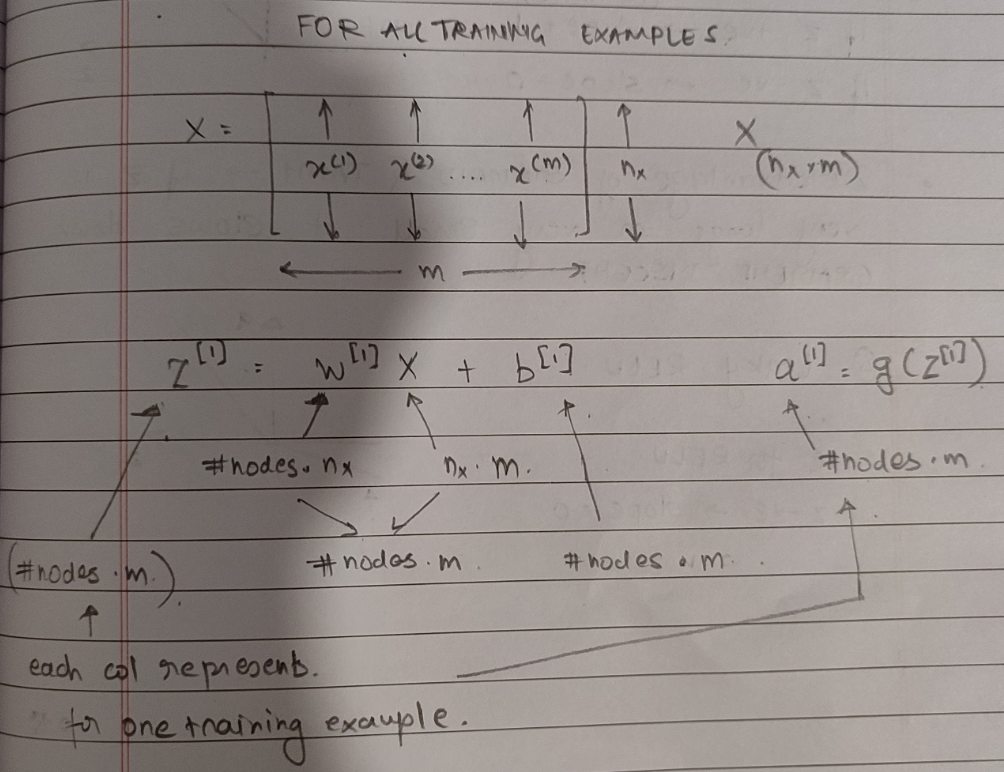 FOR ALL TRAINING EXAMPLES
X = [ x(1) x(2) .... x(m) ] nx X (nx, m)
m
Z[1] = W[1] X + b[1] a[1] = g(Z[1])
#nodes · nx nx · m. #nodes · m.
(#nodes · m.) #nodes · m. #nodes · m.
each col represents.
for one training example.